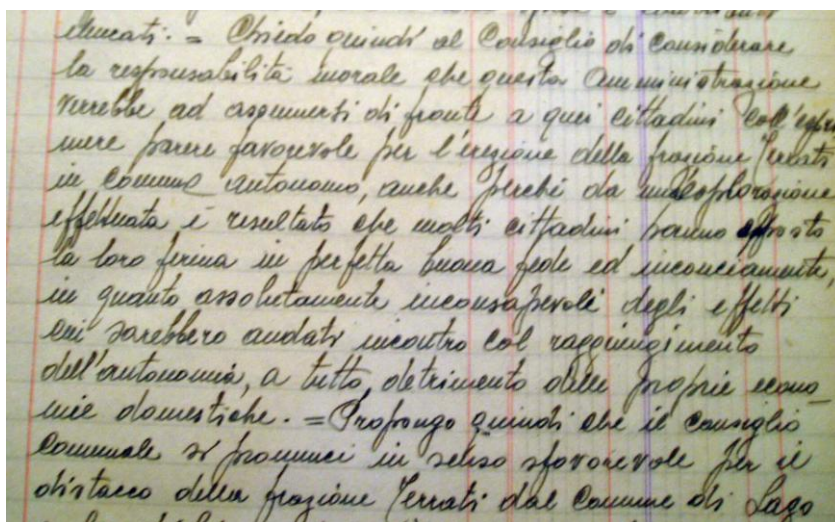 educati. = Chiedo quindi al Consiglio di considerare
la responsabilità morale che questa Amministrazione
verrebbe ad assumersi di fronte a quei cittadini coll'espri
mere parere favorevole per l'erezione della frazione Terrati
in comune autonomo, anche perchè da un'esplorazione
effettuata è resultato che molti cittadini hanno apposto
la loro firma in perfetta buona fede ed inconciamente
in quanto assolutamente inconsapevoli degli effetti
cui sarebbero andati incontro col raggiungimento
dell'autonomia, a tutto detrimento delle proprie econo_
mie domestiche. = Propongo quindi che il Consiglio
Comunale si pronunci in senso sfavorevole per il
distacco della frazione Terrati dal Comune di Lago